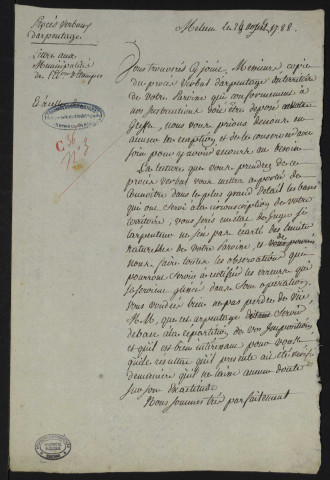 Procès Verbaux
d'arpentage.
Melun le 24 1788.
Lettre aux
Municipalités
de
Vous trouverés cy joint, Messieurs copie
du procès Verbal d'arpentage du territoire
de votre Paroisse qui conformement à
nos Instructions doit être deposé
Greffe, nous vous prions de nous en
accuser la reception, et de le conserver avec
soin pour y avoir recours au besoin.
C
La lecture que vous prendrez de ce
procès verbal vous mettra à portée de
connoitre dans le plus grand detail les bases
qui ont servi à la circonscription de votre
territoire, vous serés en état de juger si
l'arpenteur ne s'est pas écarté des limites
naturelles de votre Paroisse, et de
nous faire toutes les observations qui
pourront servir à rectifier les erreurs qui
se seroient glissées dans son operation,
vous voudrés bien ne pas perdre de vüe,
M.M. que cet arpentage servir
de base à la répartition de vos Impositions
et qu'il est bien interessant pour vous
que le resultat qu'il presente ait été
de maniere qu'il ne laisse aucun doute
sur son exactitude.
Nous sommes très parfaitement